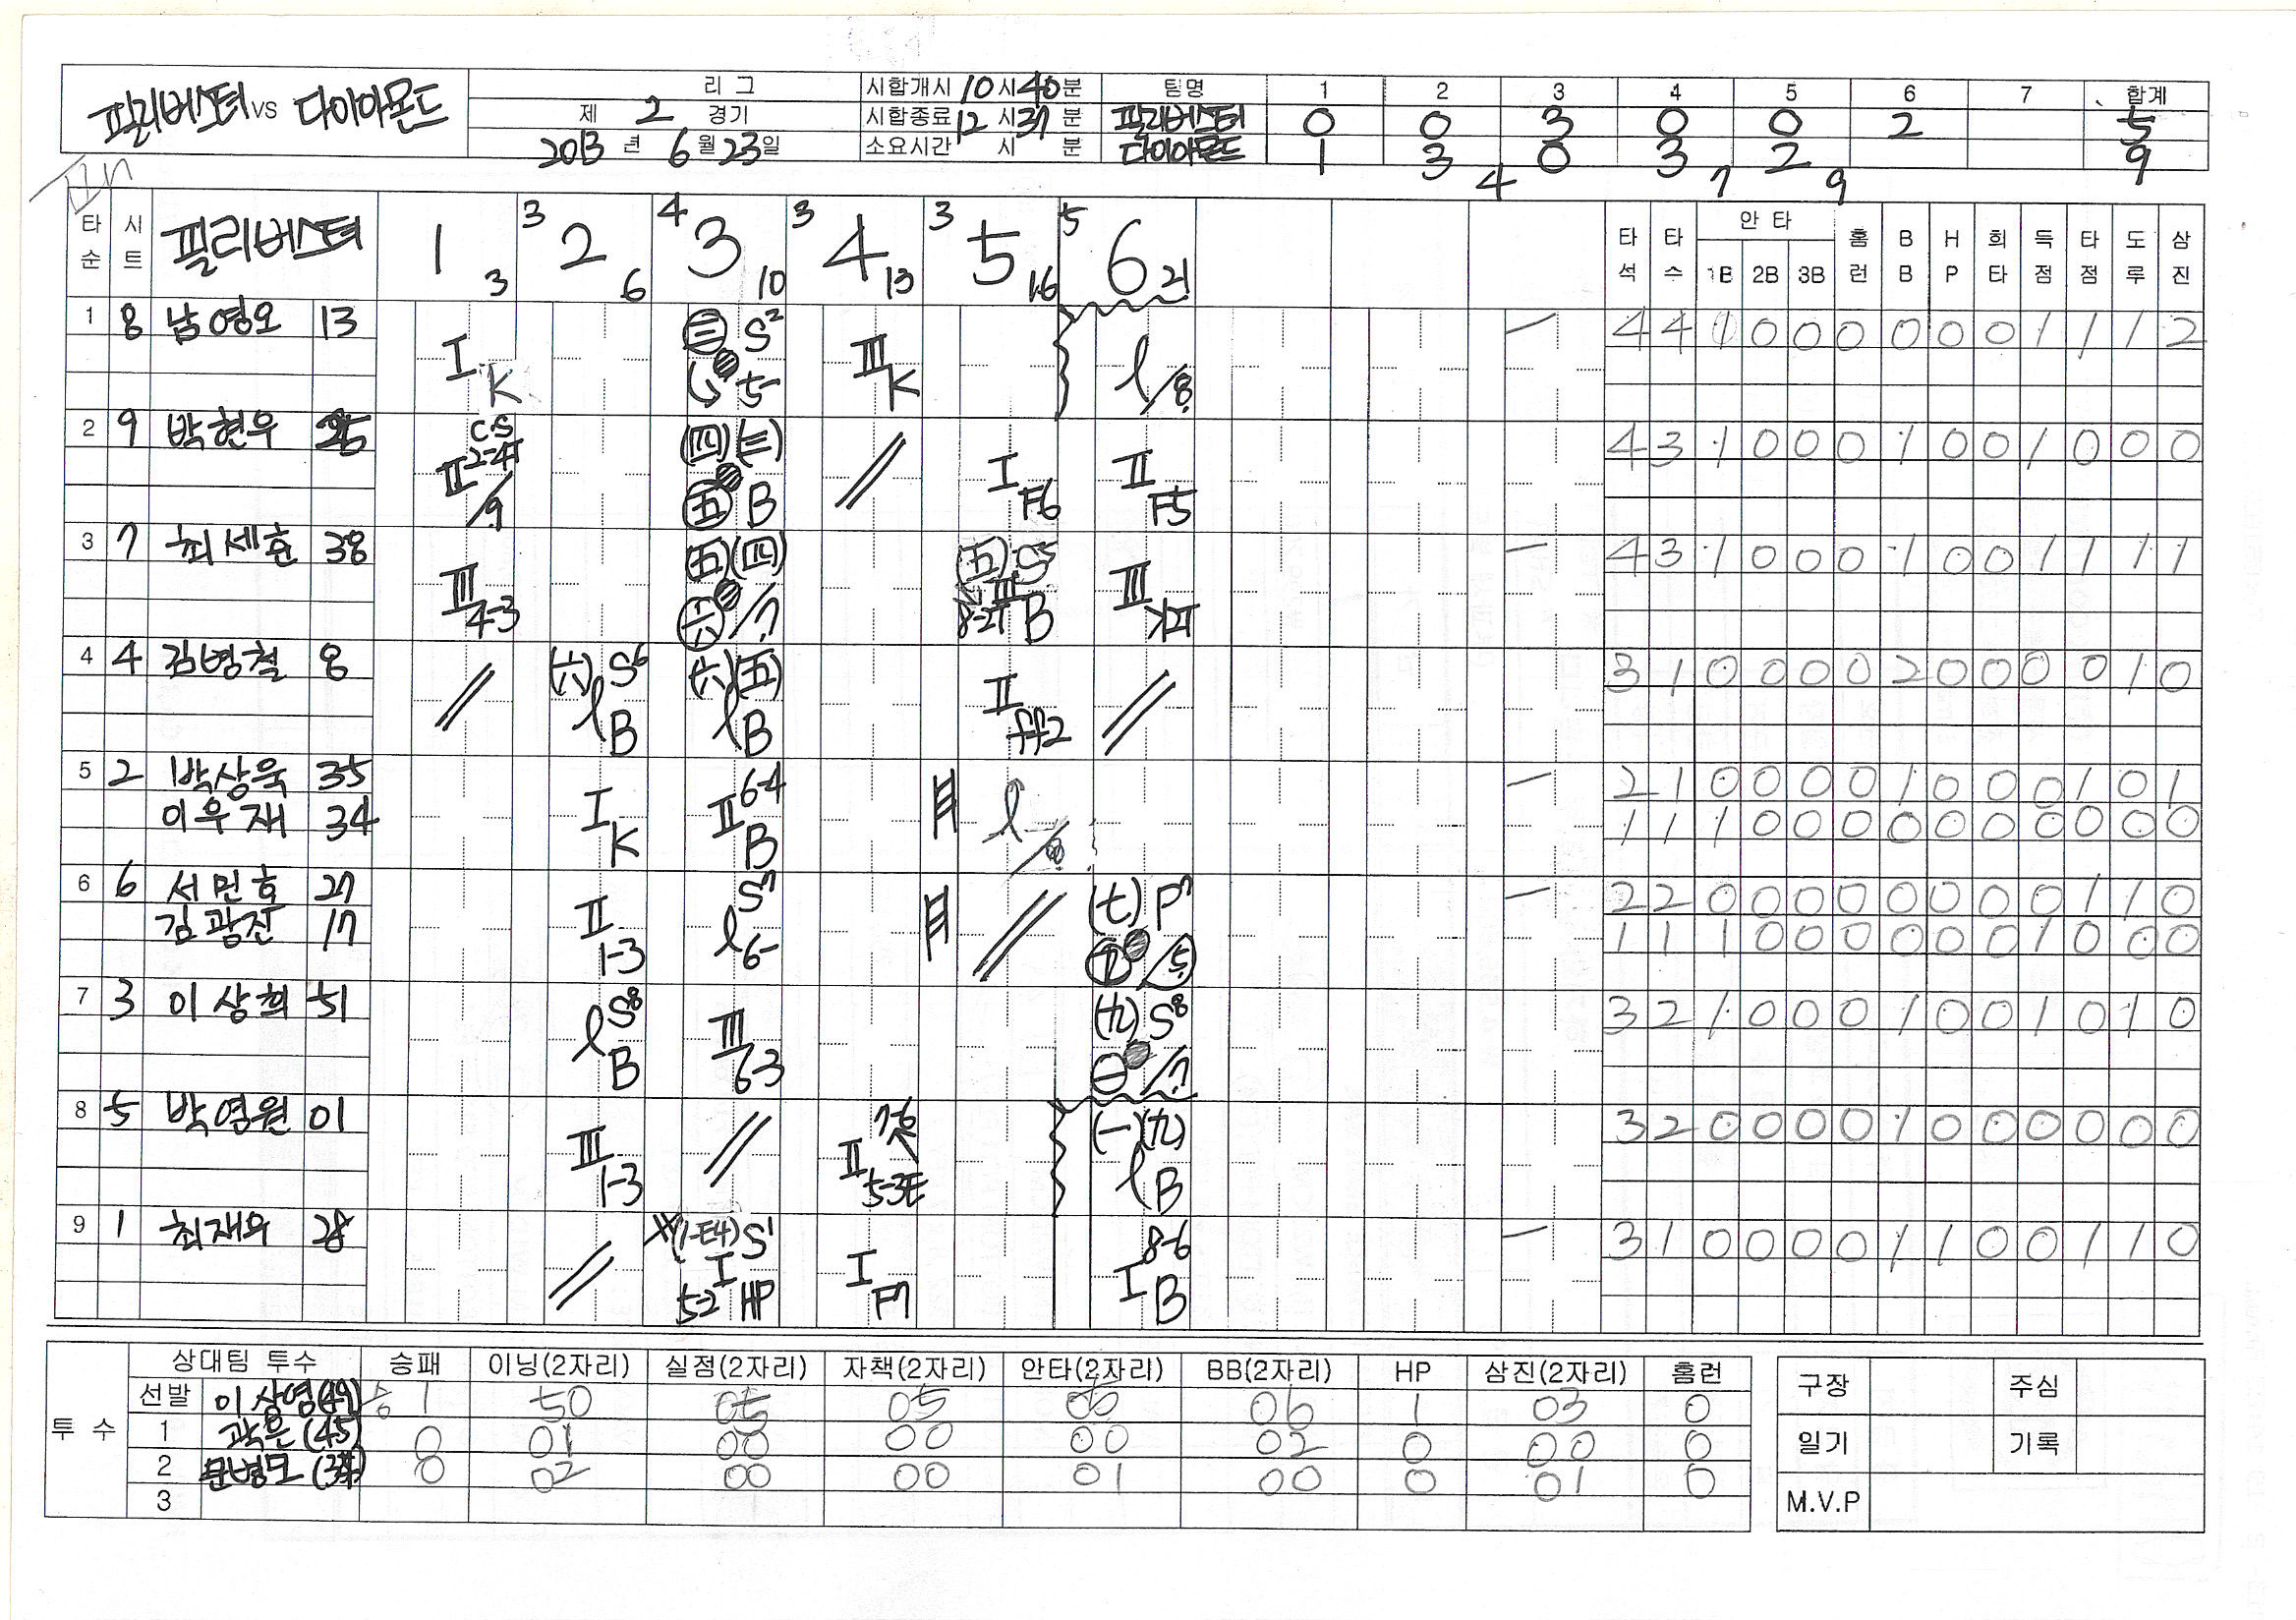 필리베스터 vs 다이아몬드
리그
제 2 경기
2013 년 6 월 23 일
시합개시 10 시 40 분
시합종료 12 시 37 분
소요시간 시 분
팀명 1 2 3 4 5 6 7 합계
필리베스터 0 0 3 0 0 2 5
다이아몬드 1 3 0 3 2 9
4 7 9
타순 시트 필리베스터 1 3 3 2 6 4 3 10 3 4 13 3 5 16 5 6 21
타석 타수 안타 1B 2B 3B 홈런 BB HP 희타 득점 타점 도루 삼진
1 8 남영오 13
I K
三 S2 5-
III K
l /8
4 4 1 0 0 0 0 0 0 1 1 1 2
2 9 박현우 25
CS II 2-4T /9
(四)(三) 五 B
I F6
II F5
4 3 1 0 0 0 1 0 0 1 0 0 0
3 7 최세훈 38
III 4-3
(五)(四) 六 /7
(五) S5 III 8-2T B
III
4 3 1 0 0 0 1 0 0 1 1 1 1
4 4 김병철 8
(六) S6 l B
(六)(五) l B
II ff2
3 1 0 0 0 0 2 0 0 0 0 1 0
5 2 박상욱 35
I K
II 6-4 B
l /8
2 1 0 0 0 0 1 0 0 0 1 0 1
이우재 34
1 1 1 0 0 0 0 0 0 0 0 0 0
6 6 서민호 27
II 1-3
S7 l 6-
(七) P7 /5
2 2 0 0 0 0 0 0 0 0 1 1 0
김광진 17
1 1 1 0 0 0 0 0 0 1 0 0 0
7 3 이상희 51
S8 l B
III 6-3
(九) S8 一 /7
3 2 1 0 0 0 1 0 0 1 0 1 0
8 5 박영원 01
III 1-3
II 5-3E
(一)(九) l B
3 2 0 0 0 0 1 0 0 0 0 0 0
9 1 최재우 28
(1-E4) S1 I 5-2 HP
I F7
8-6 I B
3 1 0 0 0 0 1 1 0 0 1 1 0
투수 상대팀 투수 승패 이닝(2자리) 실점(2자리) 자책(2자리) 안타(2자리) BB(2자리) HP 삼진(2자리) 홈런
선발 이상영(49) 1 50 05 05 06 1 03 0
1 곽은(45) 0 01 00 00 00 02 0 00 0
2 0 02 00 00 01 00 0 01 0
3
구장 주심
일기 기록
M.V.P